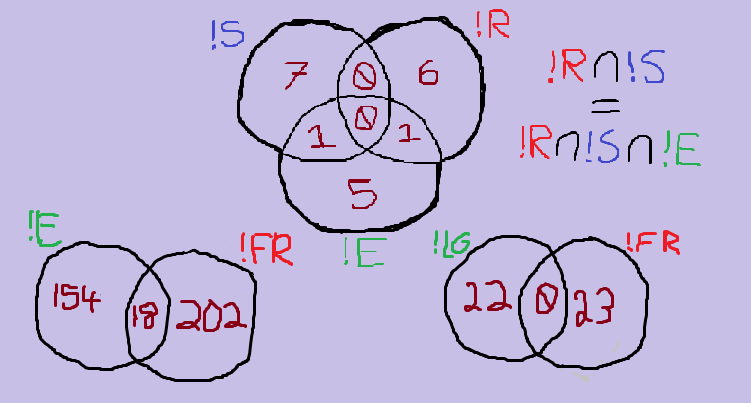 !S
!R
7 0 6
0
1 1
5
!E
!R∩!S
=
!R∩!S∩!E
!E
!FR
154 18 202
!LG
!FR
22 0 23